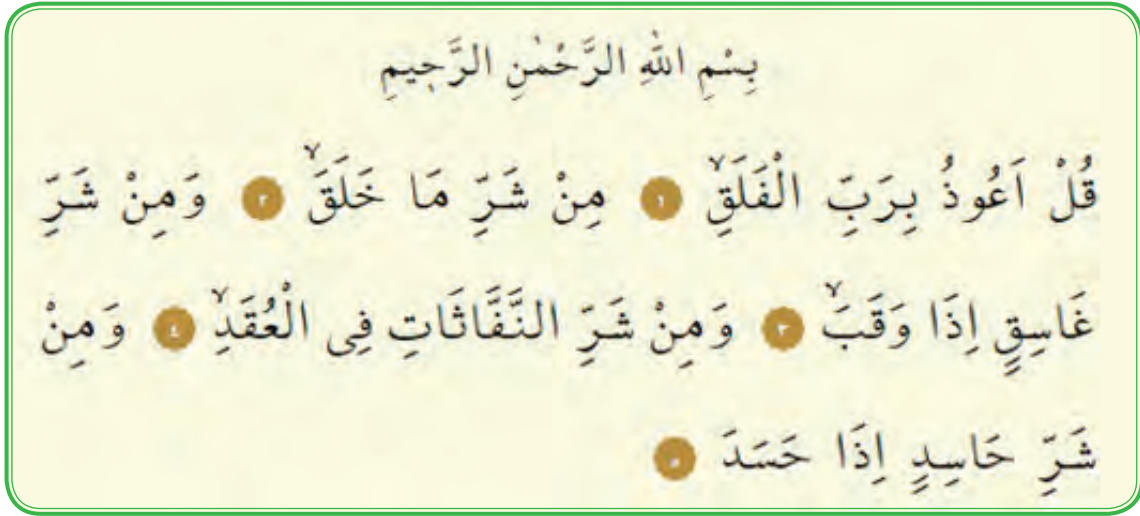 بِسْمِ اللّٰهِ الرَّحْمٰنِ الرَّح۪يمِ
قُلْ اَعُوذُ بِرَبِّ الْفَلَقِۙ ﴿١﴾ مِنْ شَرِّ مَا خَلَقَۙ ﴿٢﴾ وَمِنْ شَرِّ
غَاسِقٍ اِذَا وَقَبَۙ ﴿٣﴾ وَمِنْ شَرِّ النَّفَّاثَاتِ فِى الْعُقَدِۙ ﴿٤﴾ وَمِنْ
شَرِّ حَاسِدٍ اِذَا حَسَدَ ﴿٥﴾